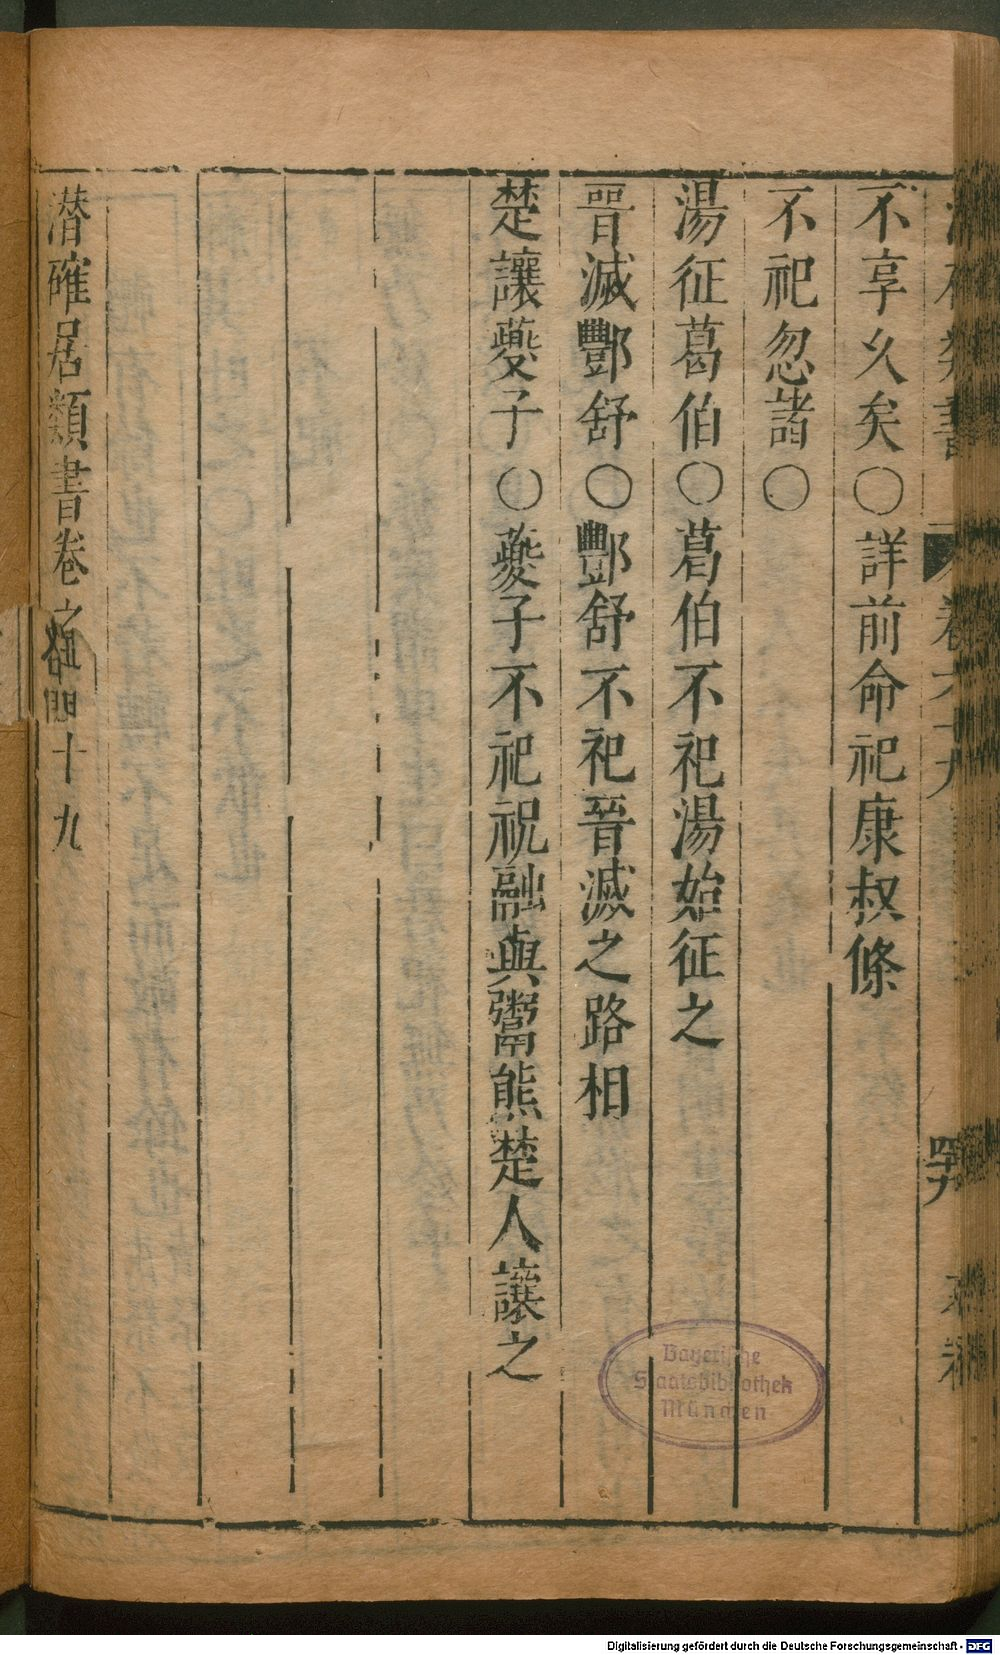 不享久矣○詳前命祀康叔條
不祀忽諸○
湯征葛伯○葛伯不祀湯始征之
晉滅酆舒○酆舒不祀晉滅之路相
楚讓夔子○夔子不祀祝融與鬻熊楚人讓之
潛確居類書卷之 十九
卷六十九
Bayerische
Staatsbibliothek
München
Digitalisierung gefördert durch die Deutsche Forschungsgemeinschaft - DFG